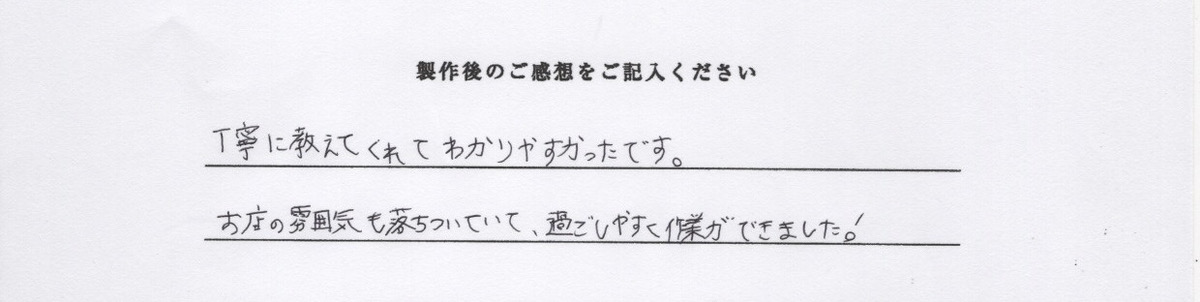 製作後のご感想をご記入ください
丁寧に教えてくれてわかりやすかったです。
お店の雰囲気も落ちついていて、過ごしやすく作業ができました!